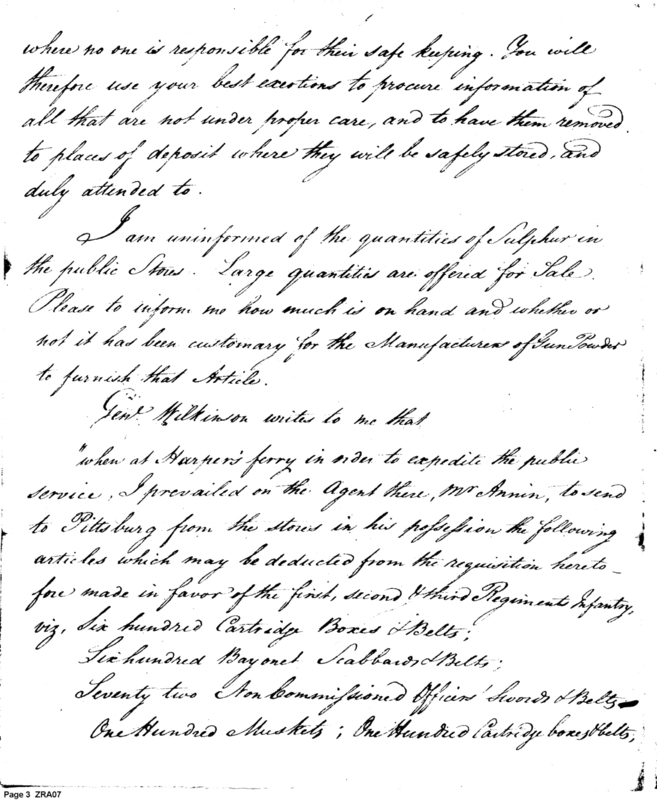 where no one is responsible for their safe keeping. You will
therefore use your best exertions to procure information of
all that are not under proper care, and to have them removed
to places of deposit where they will be safely stored, and
duly attended to.
I am uninformed of the quantities of Sulphur in
the public Stores. Large quantities are offered for Sale.
Please to inform me how much is on hand and whether or
not it has been customary for the Manufacturers of Gun Powder
to furnish that Article.
Genl. Wilkinson writes to me that
"when at Harper's ferry in order to expedite the public
service, I prevailed on the Agent there, Mr Annin, to send
to Pittsburg from the stores in his possession the following
articles which may be deducted from the requisition hereto-
fore made in favor of the first, second & third Regiments Infantry,
viz, Six hundred Cartridge Boxes & Belts;
Six hundred Bayonet Scabbards & Belts;
Seventy two Non Commissioned Officers' Swords & Belts
One Hundred Muskets; One Hundred Cartridge boxes & belts,
Page 3 ZRA07